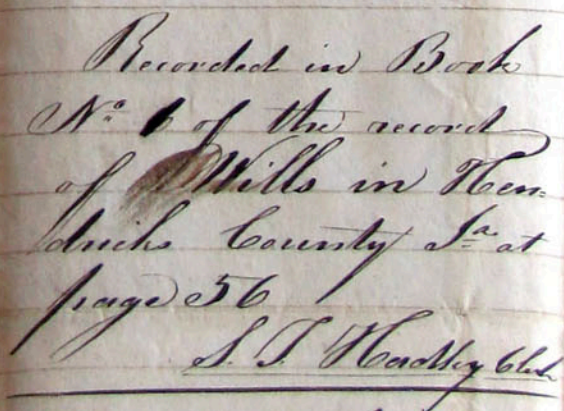 Recorded in Book
No. 1 of the record
of Wills in Hen=
dricks County Ia. at
page 56
S. T. Hadley Clerk